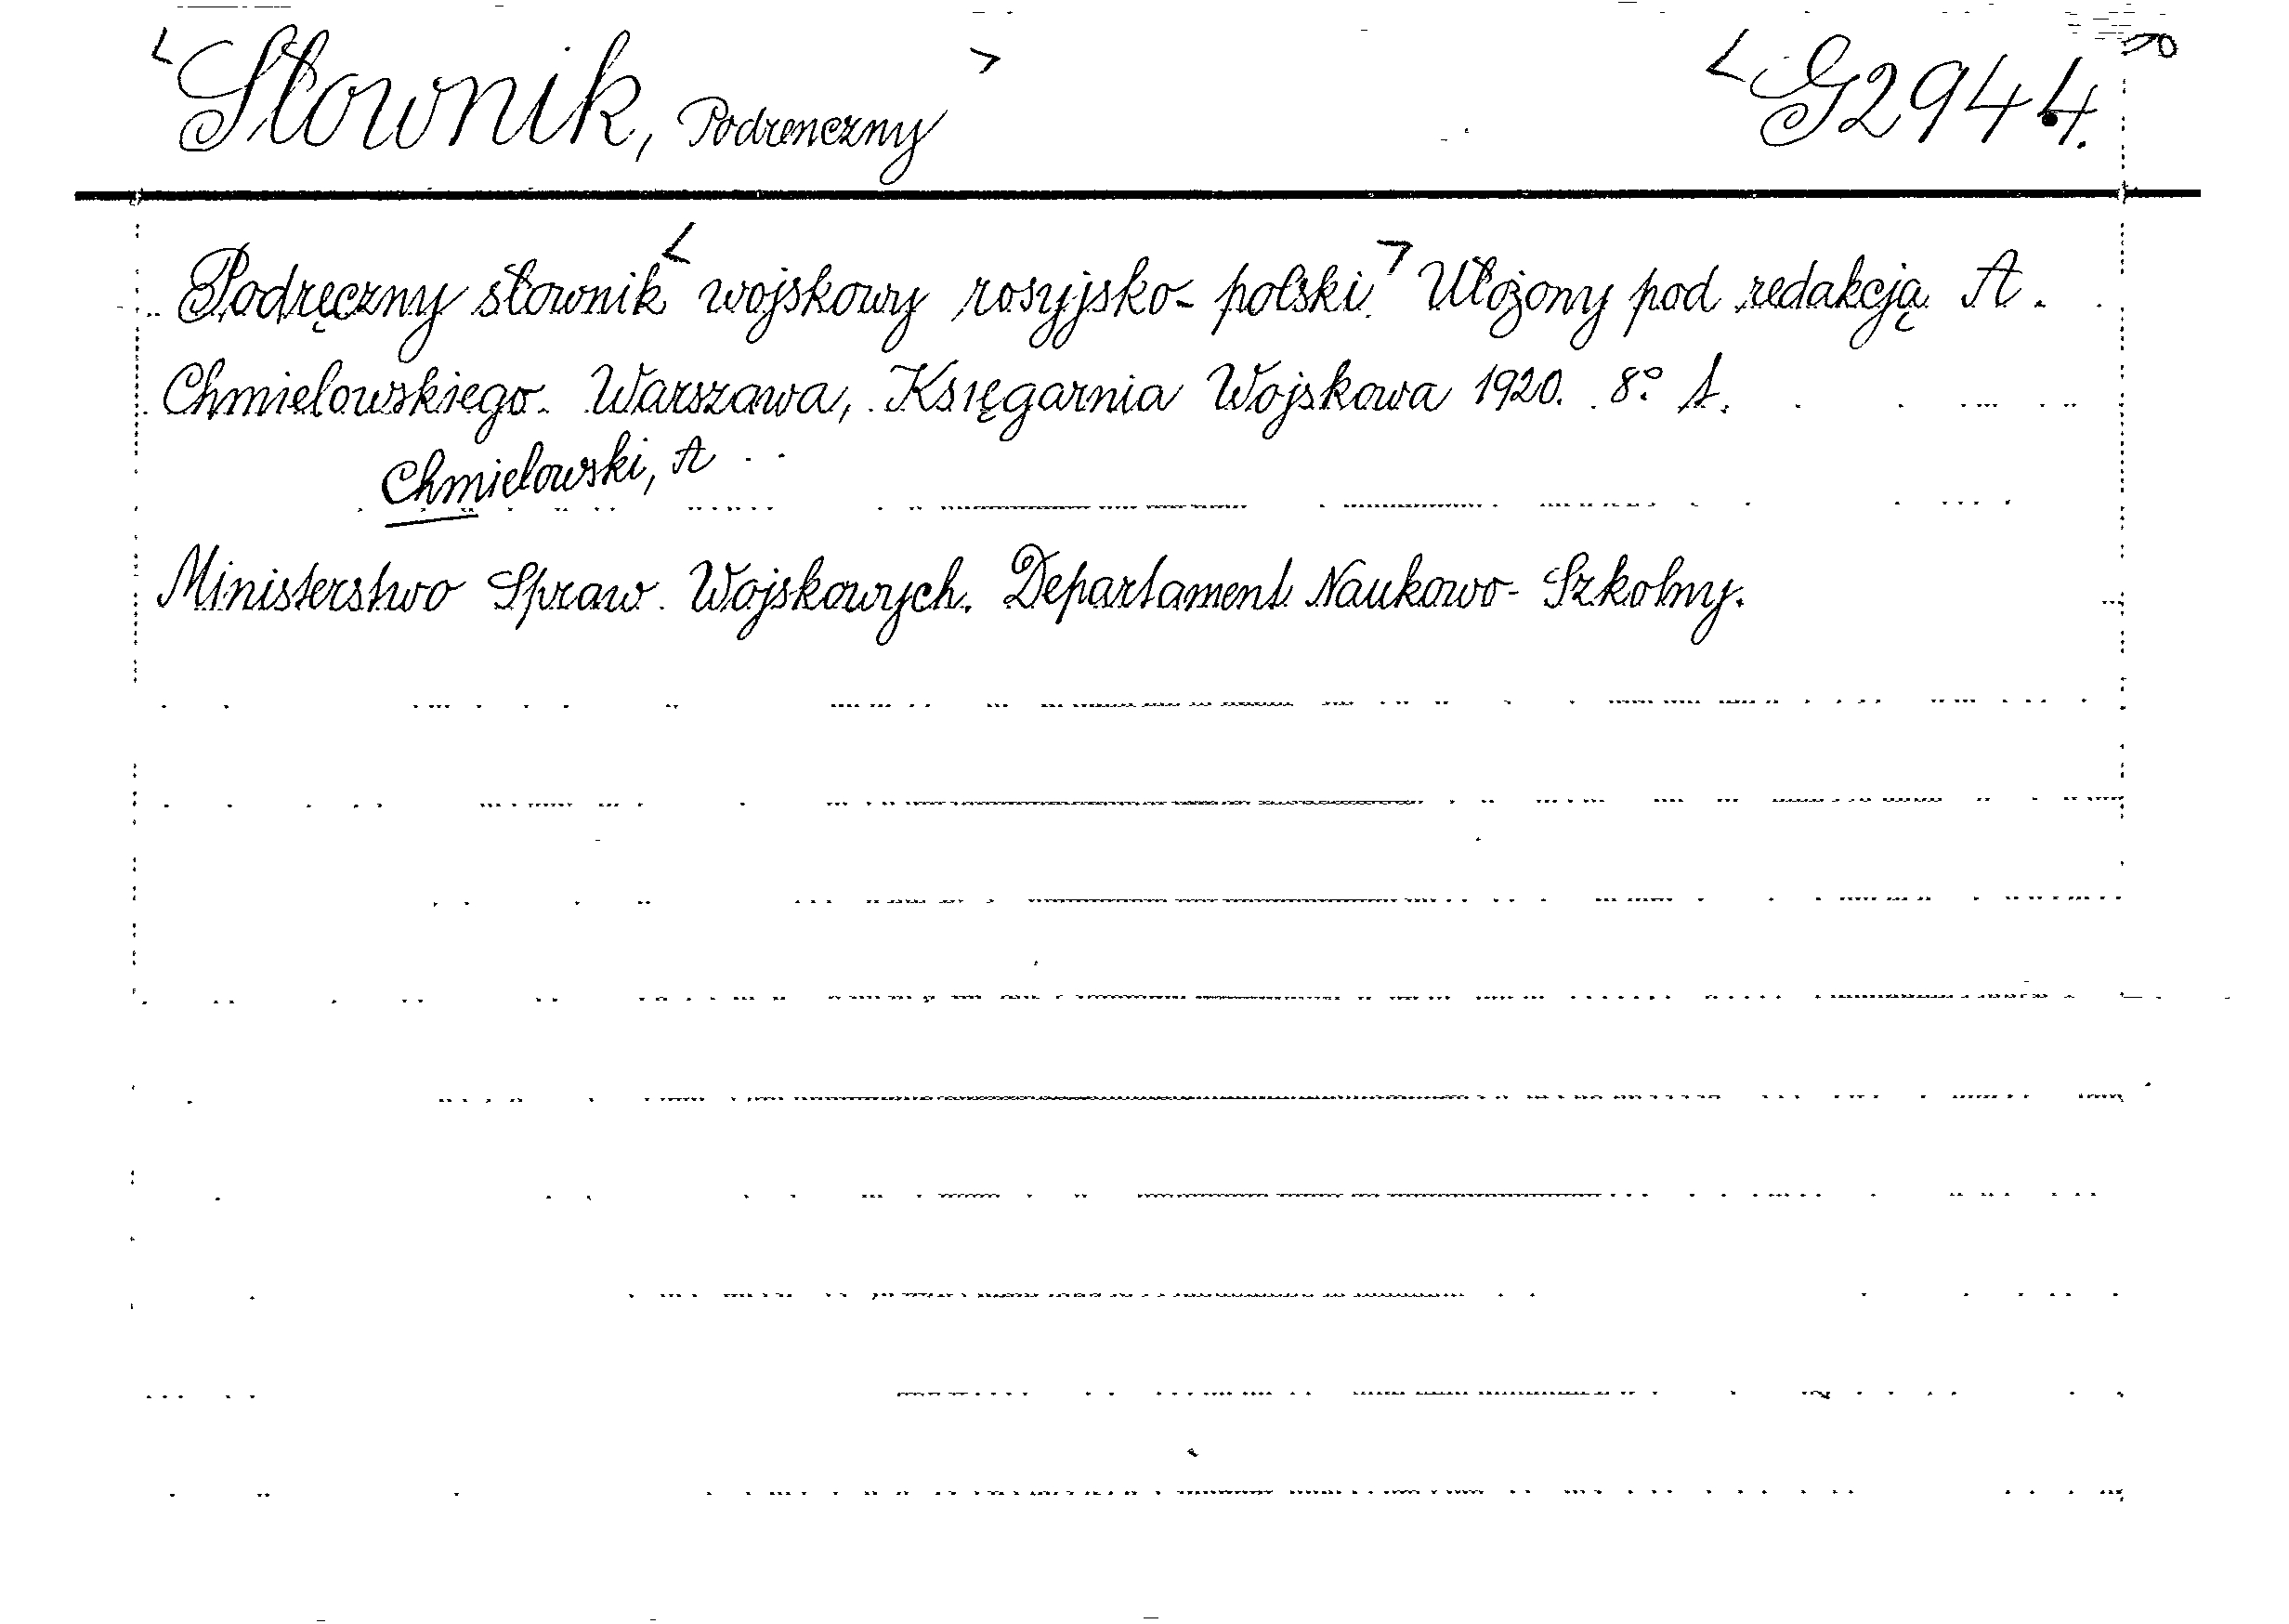 <Słownik, Podrenczny> <G2944.>
Podręczny słownik <wojskowy rosyjsko-polski.> Ułożony pod redakcją A.
Chmielowskiego. Warszawa, Księgarnia Wojskowa 1920. 8°.
Chmielowski, A
Ministerstwo Spraw Wojskowych. Departament Naukowo-Szkolny.